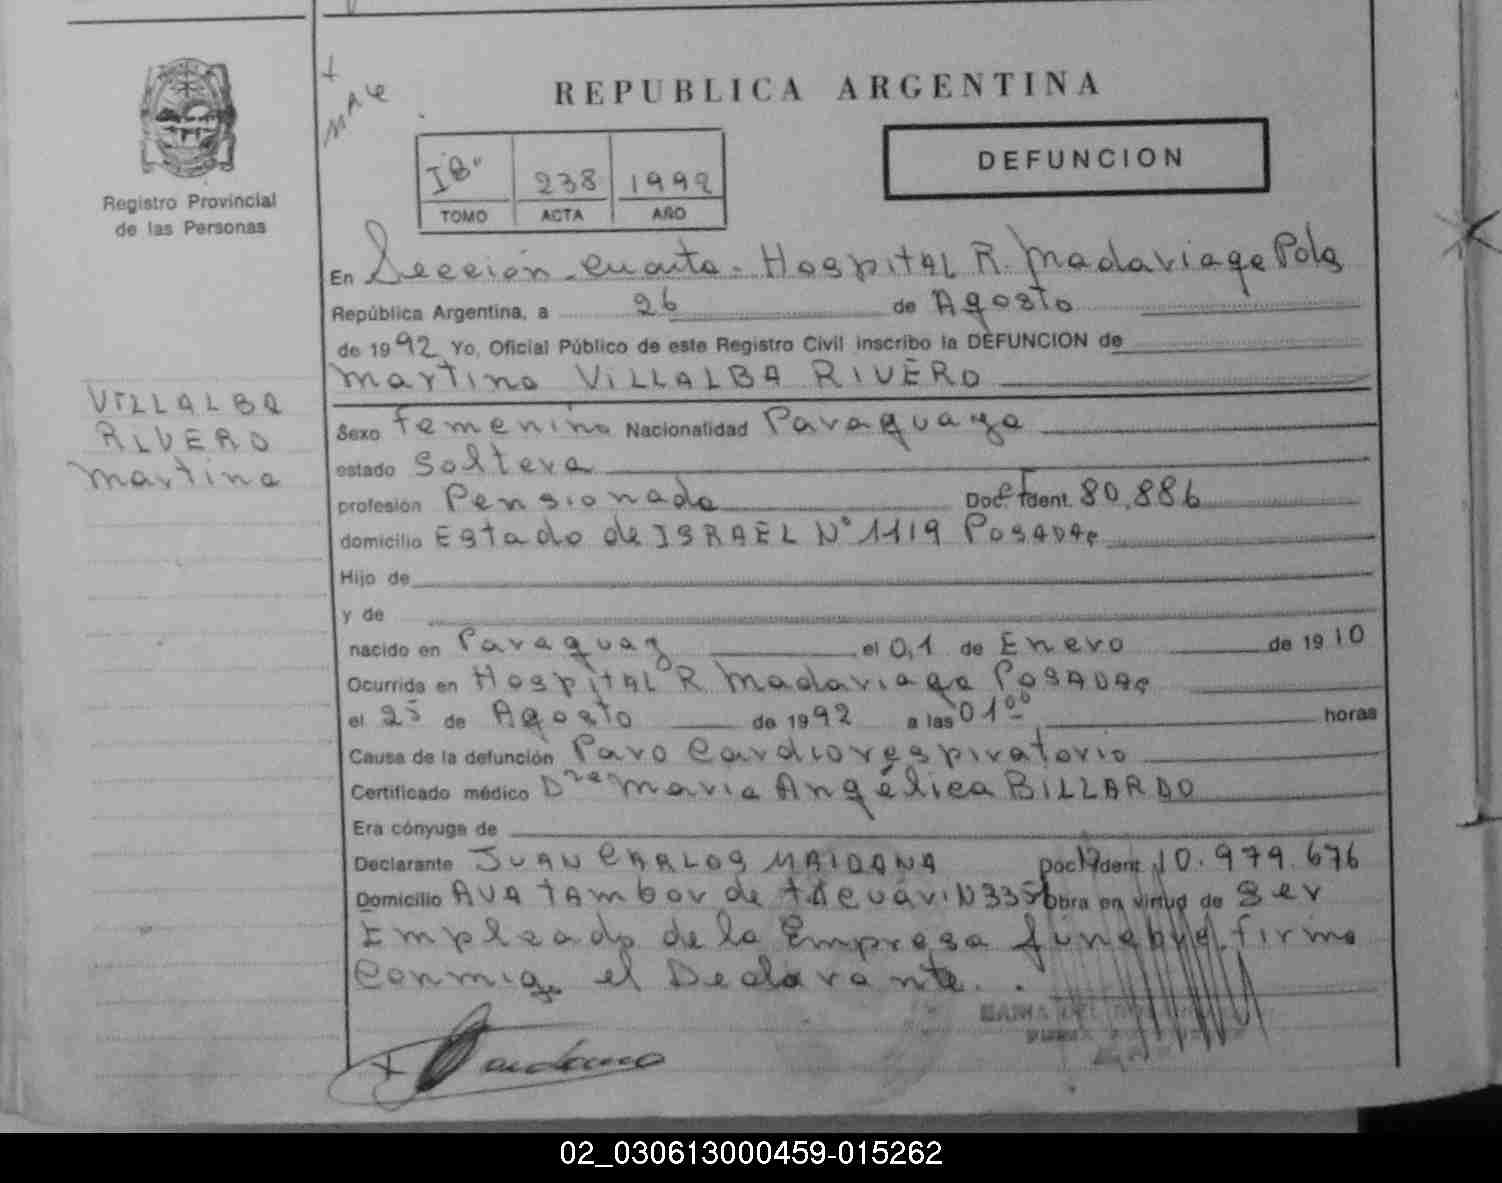 REPUBLICA ARGENTINA
DEFUNCION
Registro Provincial
de las Personas
238 1992
TOMO ACTA AÑO
En Sección Cuarta - Hospital R. Madariaga Pdas
República Argentina, a 26 de Agosto
de 1992 Yo, Oficial Público de este Registro Civil inscribo la DEFUNCION de
Martina VILLALBA RIVERO
VILLALBA
RIVERO
Martina
Sexo Femenino Nacionalidad Paraguaya
estado Soltera
profesión Pensionada Doc. Ident. 80.886
domicilio Estado de ISRAEL N° 1119 POSADAS
Hijo de
y de
nacido en Paraguay el 01 de Enero de 1910
Ocurrida en Hospital R. Madariaga POSADAS
el 25 de Agosto de 1992 a las 01 00 horas
Causa de la defunción Paro Cardiorespiratorio
Certificado médico Dra Maria Angélica BILLARDO
Era cónyuge de
Declarante JUAN CARLOS MAIDANA Doc. Ident. 10.979.676
Domicilio AVA Tambor de Tacuarí N 335 Obra en virtud de Ser
Empleado de la Empresa fúnebre firma
Conmigo el Declarante.
02_030613000459-015262